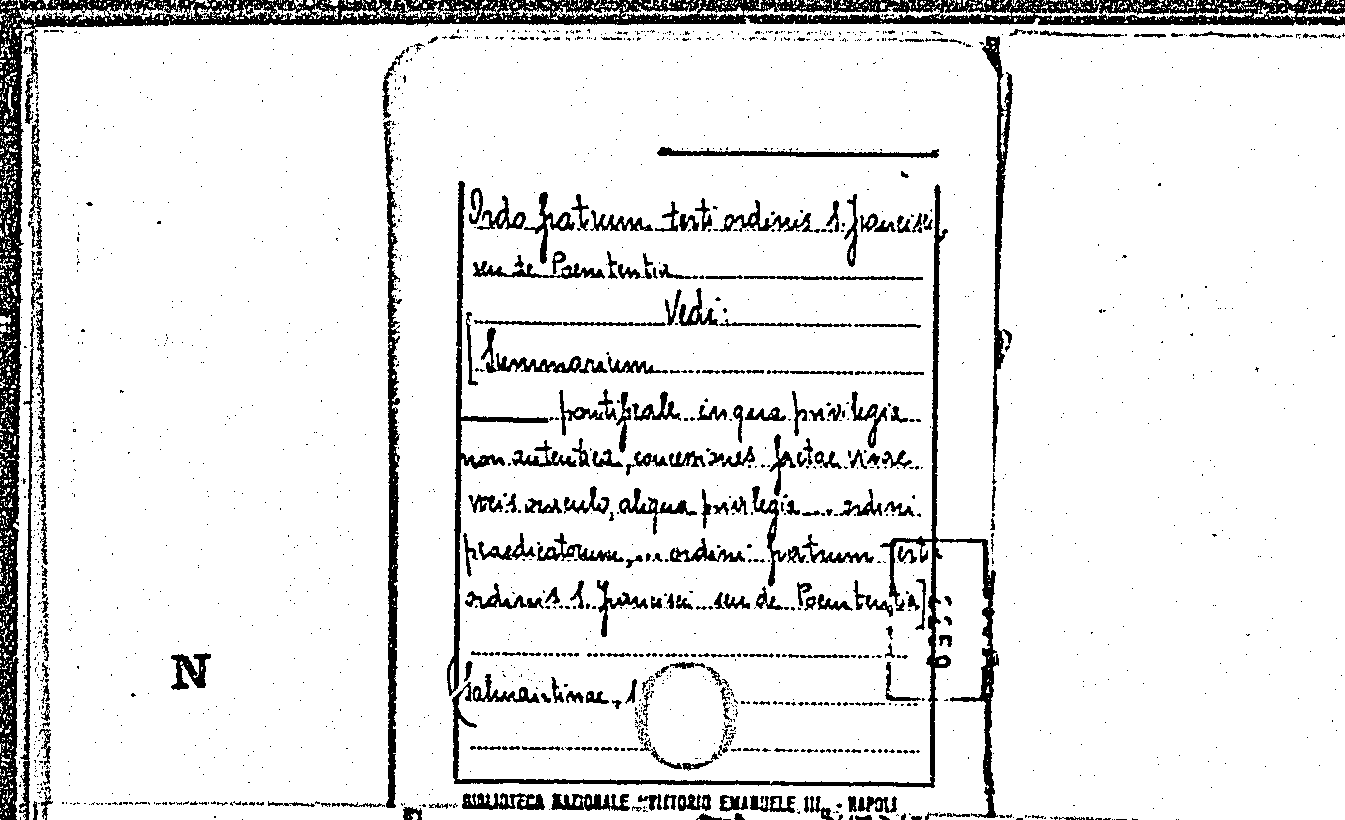 Ordo fratrum terti ordinis S. Francisci,
seu de Poenitentia
Vedi:
[Summarium
pontificale in qua privilegia
non autentica, concessiones factae vivae
vocis oraculo, aliqua privilegia ... ordini
praedicatorum, ... ordini fratrum Terti
ordinis S. Francisci seu de Poenitentia]
Salmantinae, 1
N
BIBLIOTECA NAZIONALE "VITTORIO EMANUELE III" - NAPOLI